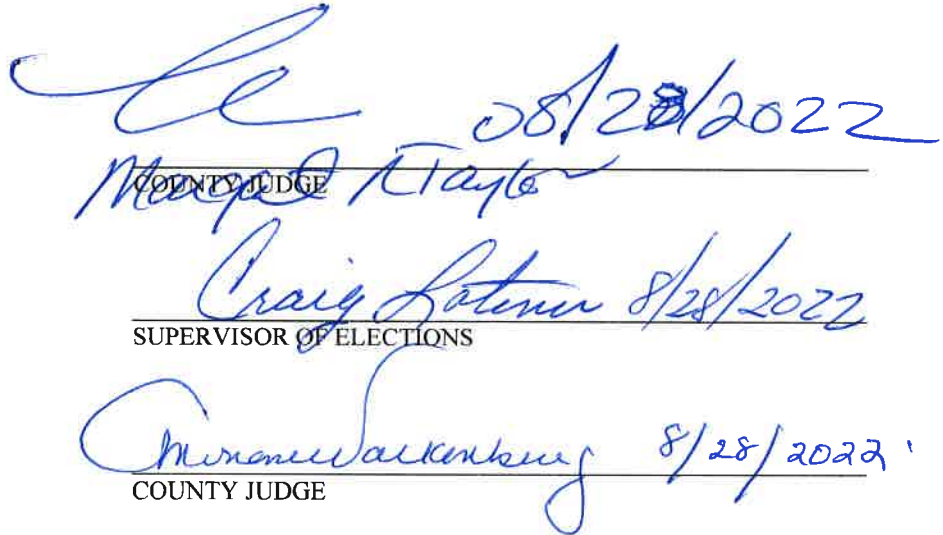 08/28/2022
COUNTY JUDGE
Margaret Taylor
Craig Latimer 8/28/2022
SUPERVISOR OF ELECTIONS
Miriam Valkenburg 8/28/2022
COUNTY JUDGE